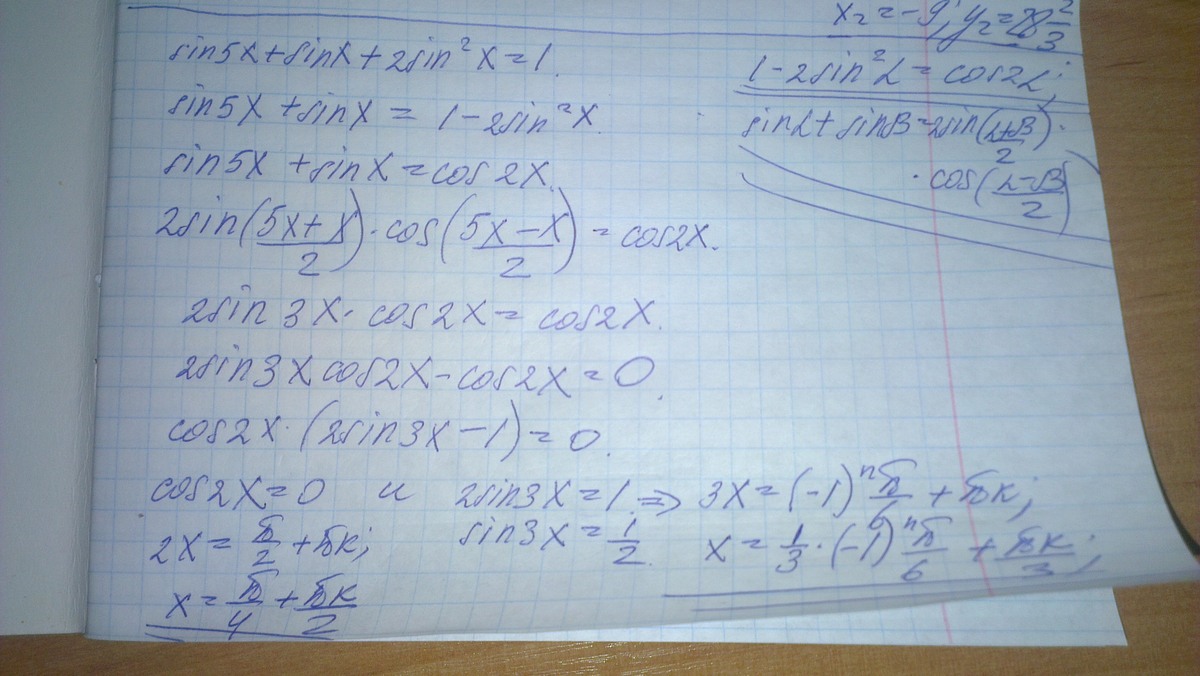 x₂ = -9; y₂ = 2/3
sin5x + sinx + 2sin²x = 1.
1 - 2sin²α = cos2α;
sin5x + sinx = 1 - 2sin²x.
sinα + sinβ = 2sin((α+β)/2) ·
· cos((α-β)/2)
sin5x + sinx = cos2x.
2sin((5x+x)/2) · cos((5x-x)/2) = cos2x.
2sin3x · cos2x = cos2x.
2sin3x cos2x - cos2x = 0.
cos2x · (2sin3x - 1) = 0.
cos2x = 0 и 2sin3x = 1. => 3x = (-1)ⁿ π/6 + πк;
2x = π/2 + πк; sin3x = 1/2. x = 1/3 · (-1)ⁿ π/6 + πк/3;
x = π/4 + πк/2